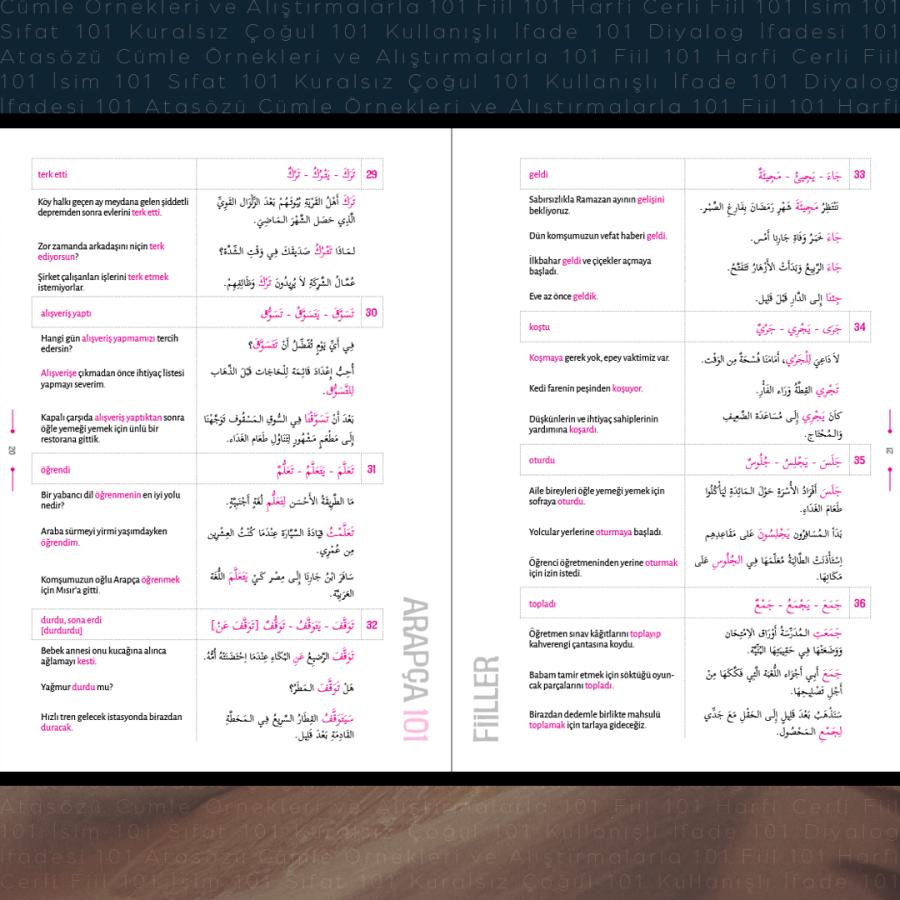 Cümle Örnekleri ve Alıştırmalarla 101 Fiil 101 Harfi Cerli Fiil 101 İsim 101
Sıfat 101 Kuralsız Çoğul 101 Kullanışlı İfade 101 Diyalog İfadesi 101
Atasözü Cümle Örnekleri ve Alıştırmalarla 101 Fiil 101 Harfi Cerli Fiil
101 İsim 101 Sıfat 101 Kuralsız Çoğul 101 Kullanışlı İfade 101 Diyalog
İfadesi 101 Atasözü Cümle Örnekleri ve Alıştırmalarla 101 Fiil 101 Harfi
terk etti
تَرَكَ - يَتْرُكُ - تَرْكٌ
29
Köy halkı geçen ay meydana gelen şiddetli
depremden sonra evlerini terk etti.
تَرَكَ أَهْلُ الْقَرْيَةِ بُيُوتَهُمْ بَعْدَ الزِّلْزَالِ الْقَوِيِّ
الَّذِي حَصَلَ الشَّهْرَ الْمَاضِيَ.
Zor zamanda arkadaşını niçin terk
ediyorsun?
لِمَاذَا تَتْرُكُ صَدِيقَكَ فِي وَقْتِ الشِّدَّةِ؟
Şirket çalışanları işlerini terk etmek
istemiyorlar.
عُمَّالُ الشَّرِكَةِ لَا يُرِيدُونَ تَرْكَ وَظَائِفِهِمْ.
alışveriş yaptı
تَسَوَّقَ - يَتَسَوَّقُ - تَسَوُّقٌ
30
Hangi gün alışveriş yapmamızı tercih
edersin?
فِي أَيِّ يَوْمٍ تُفَضِّلُ أَنْ نَتَسَوَّقَ؟
Alışverişe çıkmadan önce ihtiyaç listesi
yapmayı severim.
أُحِبُّ إِعْدَادَ قَائِمَةٍ لِلْحَاجَاتِ قَبْلَ الذَّهَابِ
لِلتَّسَوُّقِ.
Kapalı çarşıda alışveriş yaptıktan sonra
öğle yemeği yemek için ünlü bir
restorana gittik.
بَعْدَ أَنْ تَسَوَّقْنَا فِي السُّوقِ الْمَسْقُوفِ تَوَجَّهْنَا
إِلَى مَطْعَمٍ مَشْهُورٍ لِتَنَاوُلِ طَعَامِ الْغَدَاءِ.
öğrendi
تَعَلَّمَ - يَتَعَلَّمُ - تَعَلُّمٌ
31
Bir yabancı dil öğrenmenin en iyi yolu
nedir?
مَا الطَّرِيقَةُ الْأَحْسَنِ لِتَعَلُّمِ لُغَةٍ أَجْنَبِيَّةٍ.
Araba sürmeyi yirmi yaşımdayken
öğrendim.
تَعَلَّمْتُ قِيَادَةَ السَّيَّارَةِ عِنْدَمَا كُنْتُ الْعِشْرِينَ
مِن عُمْرِي.
Komşumuzun oğlu Arapça öğrenmek
için Mısır'a gitti.
سَافَرَ ابْنُ جَارِنَا إِلَى مِصْرَ كَيْ يَتَعَلَّمَ اللُّغَةَ
الْعَرَبِيَّةَ.
durdu, sona erdi
[durdurdu]
تَوَقَّفَ - يَتَوَقَّفُ - تَوَقُّفٌ [تَوَقَّفَ عَنْ]
32
Bebek annesi onu kucağına alınca
ağlamayı kesti.
تَوَقَّفَ الرَّضِيعُ عَنِ الْبُكَاءِ عِنْدَمَا اِحْتَضَنَتْهُ أُمُّهُ.
Yağmur durdu mu?
هَلْ تَوَقَّفَ الْمَطَرُ؟
Hızlı tren gelecek istasyonda birazdan
duracak.
سَيَتَوَقَّفُ الْقِطَارُ السَّرِيعُ فِي الْمَحَطَّةِ
الْقَادِمَةِ بَعْدَ قَلِيلٍ.
20
ARAPÇA 101
geldi
جَاءَ - يَجِيئُ - مَجِيئَةٌ
33
Sabırsızlıkla Ramazan ayının gelişini
bekliyoruz.
نَنْتَظِرُ مَجِيئَةَ شَهْرِ رَمَضَانَ بِفَارِغِ الصَّبْرِ.
Dün komşumuzun vefat haberi geldi.
جَاءَ خَبَرُ وَفَاةِ جَارِنَا أَمْسِ.
İlkbahar geldi ve çiçekler açmaya
başladı.
جَاءَ الرَّبِيعُ وَبَدَأَتْ الْأَزْهَارُ تَتَفَتَّحُ.
Eve az önce geldik.
جِئْنَا إِلَى الدَّارِ قَبْلَ قَلِيلٍ.
koştu
جَرَى - يَجْرِي - جَرْيٌ
34
Koşmaya gerek yok, epey vaktimiz var.
لَا دَاعِيَ لِلْجَرْيِ، أَمَامَنَا فُسْحَةٌ مِنَ الْوَقْتِ.
Kedi farenin peşinden koşuyor.
تَجْرِي الْقِطَّةُ وَرَاءَ الْفَأْرِ.
Düşkünlerin ve ihtiyaç sahiplerinin
yardımına koşardı.
كَانَ يَجْرِي إِلَى مُسَاعَدَةِ الضَّعِيفِ
وَالْمُحْتَاجِ.
oturdu
جَلَسَ - يَجْلِسُ - جُلُوسٌ
35
Aile bireyleri öğle yemeği yemek için
sofraya oturdu.
جَلَسَ أَفْرَادُ الْأُسْرَةِ حَوْلَ الْمَائِدَةِ لِيَأْكُلُوا
طَعَامَ الْغَدَاءِ.
Yolcular yerlerine oturmaya başladı.
بَدَأَ الْمُسَافِرُونَ يَجْلِسُونَ عَلَى مَقَاعِدِهِم
Öğrenci öğretmeninden yerine oturmak
için izin istedi.
اِسْتَأْذَنَتْ الطَّالِبَةُ مُعَلِّمَهَا فِي الْجُلُوسِ عَلَى
مَكَانِهَا.
topladı
جَمَعَ - يَجْمَعُ - جَمْعٌ
36
Öğretmen sınav kâğıtlarını toplayıp
kahverengi çantasına koydu.
جَمَعَتِ الْمُدَرِّسَةُ أَوْرَاقَ الْاِمْتِحَانِ
وَوَضَعَتْهَا فِي حَقِيبَتِهَا الْبُنِّيَّةِ.
Babam tamir etmek için söktüğü oyun-
cak parçalarını topladı.
جَمَعَ أَبِي أَجْزَاءَ اللُّعْبَةِ الَّتِي فَكَّكَهَا مِنْ
أَجْلِ تَصْلِيحِهَا.
Birazdan dedemle birlikte mahsulü
toplamak için tarlaya gideceğiz.
سَنَذْهَبُ بَعْدَ قَلِيلٍ إِلَى الْحَقْلِ مَعَ جَدِّي
لِجَمْعِ الْمَحْصُولِ.
FİİLLER
Atasözü Cümle Örnekleri ve Alıştırmalarla 101 Fiil 101 Harfi Cerli Fiil
101 İsim 101 Sıfat 101 Kuralsız Çoğul 101 Kullanışlı İfade 101 Diyalog
İfadesi 101 Atasözü Cümle Örnekleri ve Alıştırmalarla 101 Fiil 101 Harfi
Cerli Fiil 101 İsim 101 Sıfat 101 Kuralsız Çoğul 101 Kullanışlı İfade 101